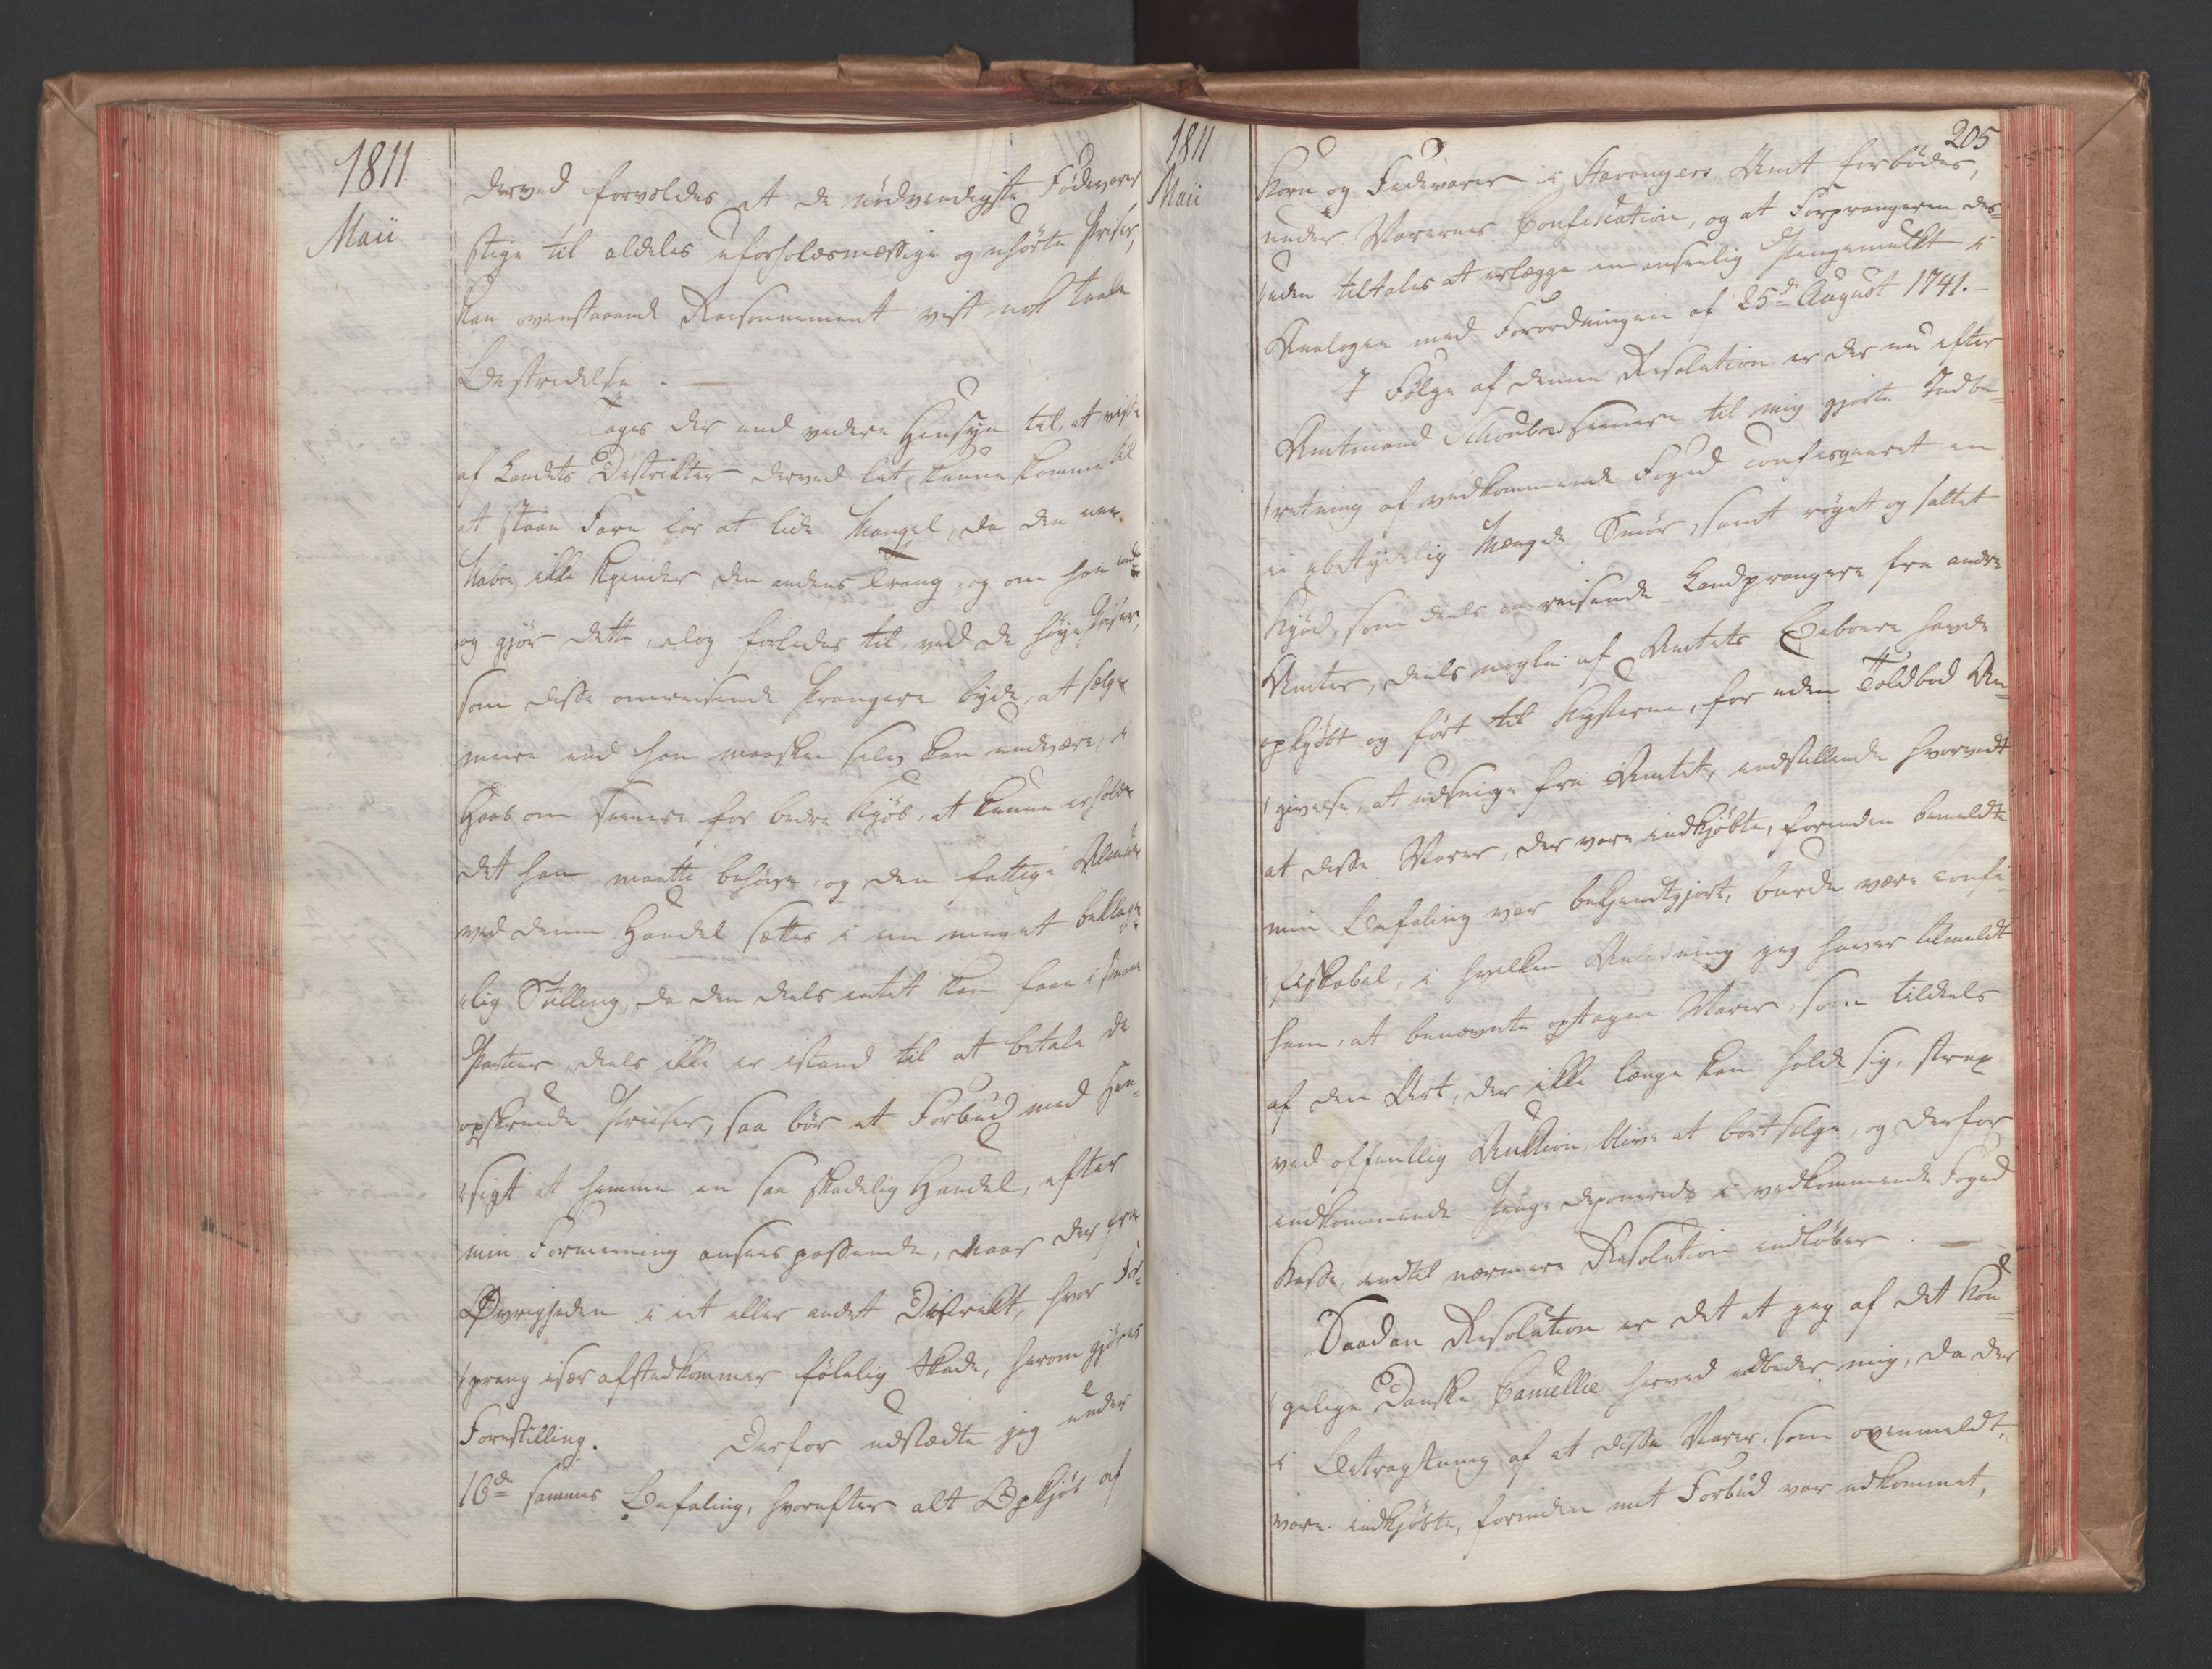 1811.
Maii
derved forvoldes at de nødvendigste Fødevarer
stige til aldeles uforholdsmæssige og uhørte Priser,
kan ovenstaaende Raisonnement vist nok taale
Bestridelse. —
Tages der end videre Hensyn til, at visse
af Landets Distrikter derved let kunne komme til
at staae Fare for at lide Mangel, da den ene
Naboe ikke kjender den andens Trang, og om han end
og gjør dette, dog forledes til, ved de høye Priser,
som disse omreisende Prangere byde, at sælge
meere end han maaskee selv kan undvære, i
Haab om senere for bedre Kjøb, at kunne erholde
det han maatte behøve, og den fattige Almue
ved denne Handel sættes i en meget beklage¬
lig Stilling, da den deels intet kan faae i smaae
Partier, deels ikke er istand til at betale de
opskruede Priser, saa bør et Forbud med Hen¬
sigt at hemme en saa skadelig Handel, efter
min Formening ansees passende, naar der fra
Øvrigheden i eet eller andet Distrikt, hvor For¬
prang især afstedkommer følelig Skade, herom gjøres
Forestilling. Derfor udstædte jeg under
16de samme Befaling, hvorefter alt Opkjøb af
1811
Maii
205
Korn og Fedevarer i Stavangers Amt forbødes,
under Varernes Confiscation, og at Forprangeren des¬
uden tiltales at erlægge en anseelig Pengemulkt i
Analogie med Forordningen af 25de August 1741. —
I Følge af denne Resolution er der nu efter
Amtmand Schouboes senere til mig gjorte Indbe¬
retning af vedkommende Foged confisqueret en
ei ubetydelig Mængde Smør, samt røget og saltet
Kjød, som deels omreisende Landprangere fra andre
Amter, deels nogle af Amtets Beboere havde
opkjøbt og ført til Kysterne, for uden Toldbod An¬
givelse, at udsnige fra Amtet, indstillende hvorvidt
at disse Varer, der vare indkjøbte, forinden bemeldte
min Befaling var bekjendtgjort, burde være confi¬
skabel, i hvilken Anledning jeg haver tilmeldt
ham, at benævnte optagne Varer, som tildeels
af den Art, der ikke længe kan holde sig, strax
ved offentlig Auktion blive at bortselge, og derfor
indkommende Penge deponerede i vedkommende Foged
Kasse, indtil nærmere Resolution indløber. —
Saadan Resolution er det at jeg af det Kon¬
gelige Danske Cancellie herved udbeder mig, da der
i Betragtning af at disse Varer, som ovenmeldt,
vare indkjøbte, forinden mit Forbud var udkommet,